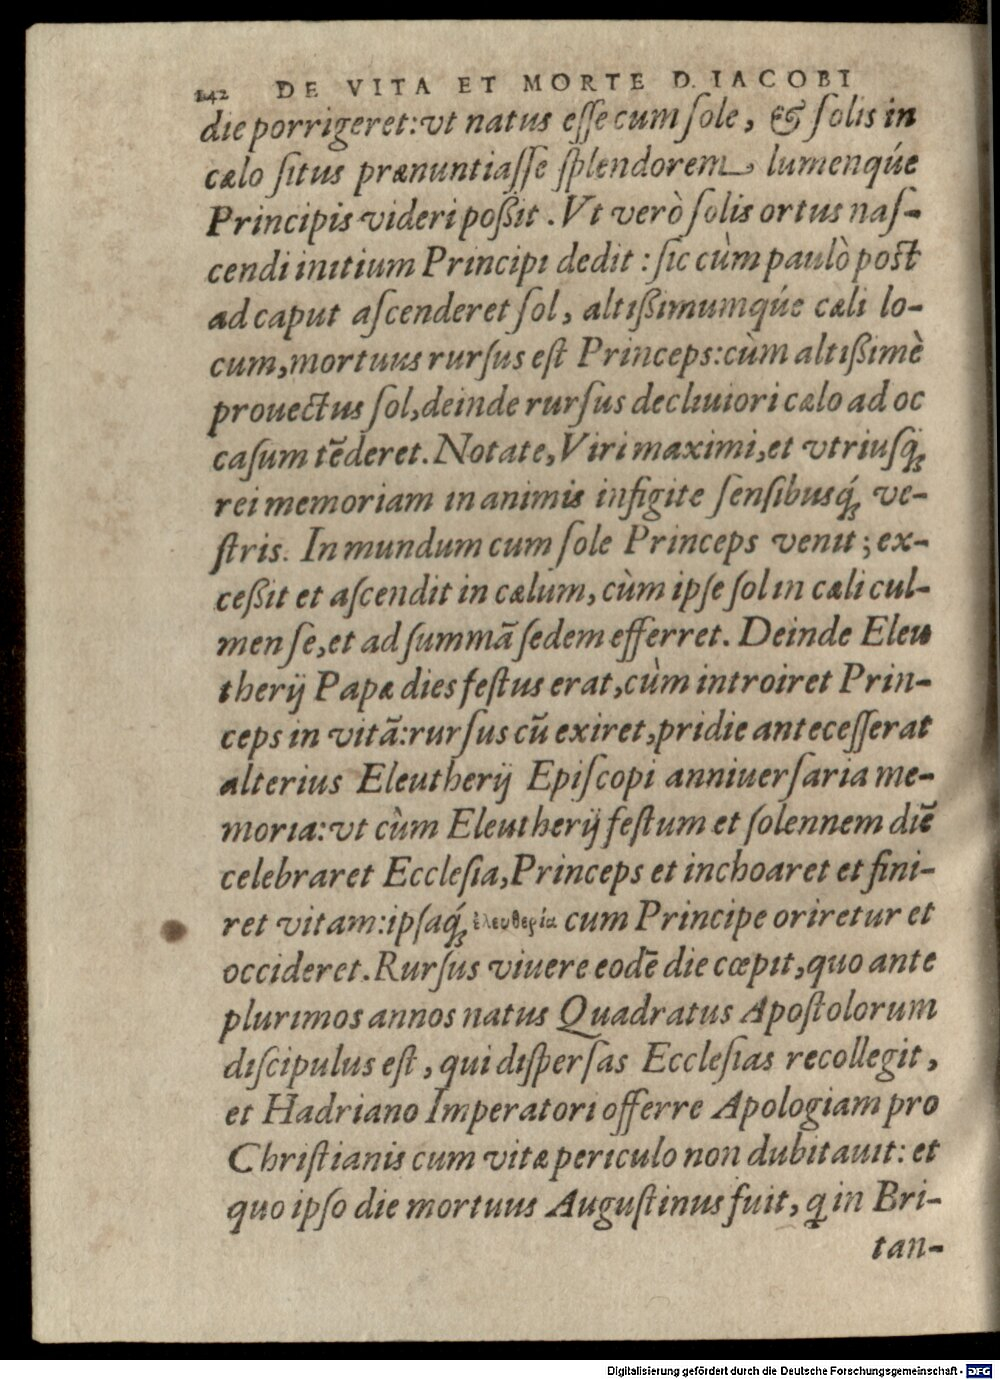 142 DE VITA ET MORTE D. IACOBI
die porrigeret: vt natus eſſe cum ſole, & ſolis in
cælo ſitus prænuntiaſſe ſplendorem lumenqúe
Principis videri poßit. Vt verò ſolis ortus naſ-
cendi initium Principi dedit: ſic cùm paulò poſt
ad caput aſcenderet ſol, altißimumqúe cæli lo-
cum, mortuus rurſus eſt Princeps: cùm altißimè
prouectus ſol, deinde rurſus decliuiori cælo ad oc
caſum tẽderet. Notate, Viri maximi, et vtriuſq́;
rei memoriam in animis infigite ſenſibusq́; ve-
ſtris. In mundum cum ſole Princeps venit; ex-
ceßit et aſcendit in cælum, cùm ipſe ſol in cæli cul-
men ſe, et ad ſummã ſedem efferret. Deinde Eleu
therij Papæ dies feſtus erat, cùm introiret Prin-
ceps in vitã: rurſus cũ exiret, pridie anteceſſerat
alterius Eleutherij Epiſcopi anniuerſaria me-
moria: vt cùm Eleutherij feſtum et ſolennem diẽ
celebraret Eccleſia, Princeps et inchoaret et fini-
ret vitam: ipſaq́; ἐλευθερία cum Principe oriretur et
occideret. Rurſus viuere eodẽ die cœpit, quo ante
plurimos annos natus Quadratus Apoſtolorum
diſcipulus eſt, qui diſperſas Eccleſias recollegit,
et Hadriano Imperatori offerre Apologiam pro
Chriſtianis cum vitæ periculo non dubitauit: et
quo ipſo die mortuus Auguſtinus fuit, q in Bri-
tan-
Digitalisierung gefördert durch die Deutsche Forschungsgemeinschaft - DFG